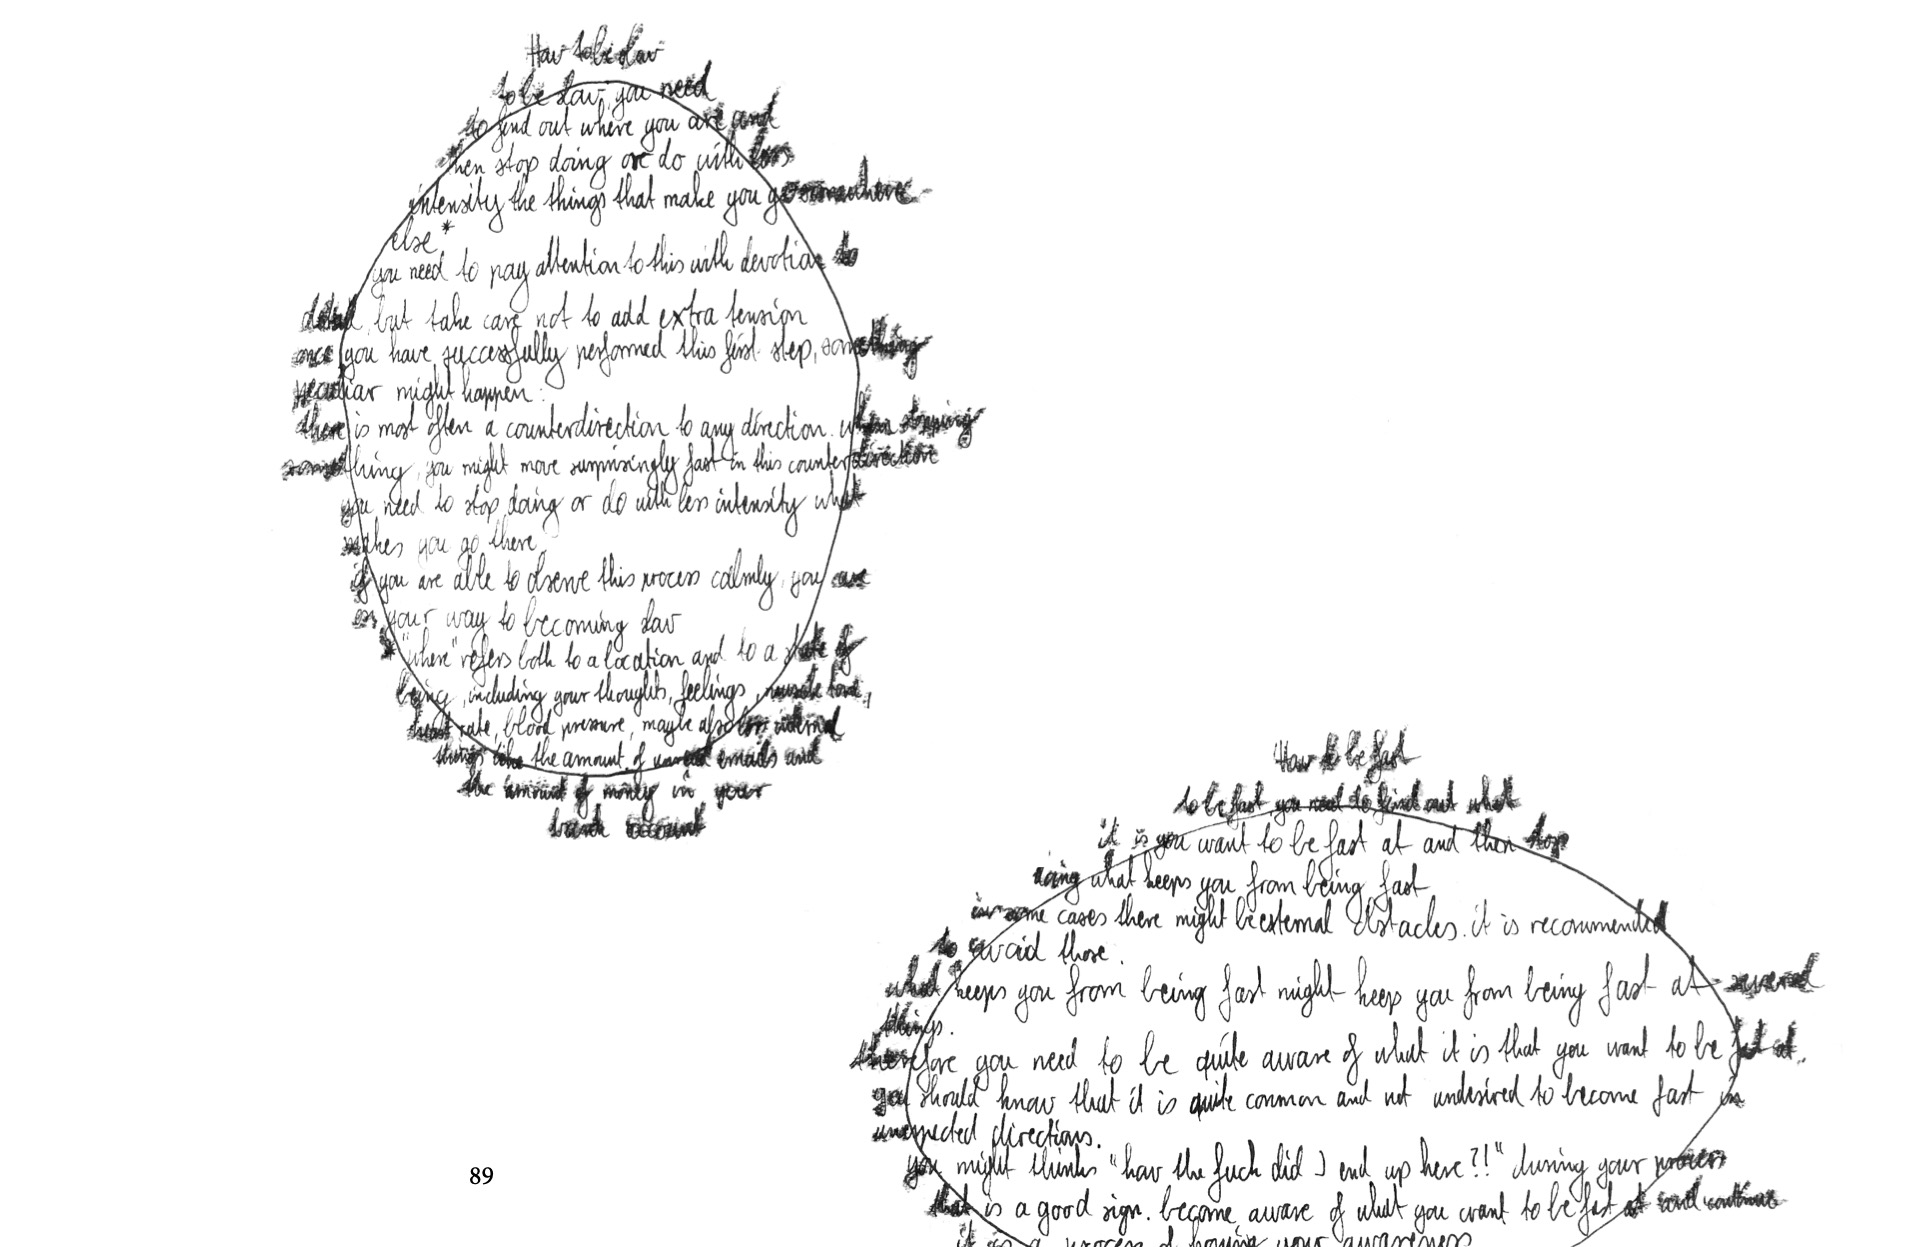 How to be slow
to be slow, you need
to find out where you are and
then stop doing or do with less
intensity the things that make you go somewhere
else*
you need to pay attention to this with devotion to
detail, but take care not to add extra tension
once you have successfully performed this first step, something
peculiar might happen:
there is most often a counterdirection to any direction. when stopping
something, you might move surprisingly fast in this counterdirection
you need to stop doing or do with less intensity what
makes you go there
if you are able to observe this process calmly, you are
on your way to becoming slow
* "where" refers both to a location and to a state of
being, including your thoughts, feelings, muscle tone,
heart rate, blood pressure, maybe also less internal
things like the amount of unread emails and
the amount of money in your
bank account
How to be fast
to be fast, you need to find out what
it is you want to be fast at and then stop
doing what keeps you from being fast
in some cases there might be external obstacles. it is recommended
to avoid those.
what keeps you from being fast might keep you from being fast at several
things.
therefore you need to be quite aware of what it is that you want to be fast at.
you should know that it is quite common and not undesired to become fast in
unexpected directions.
you might think "how the fuck did I end up here?!" during your process
that is a good sign. become aware of what you want to be fast at and continue
it is a process of honing your awareness
89